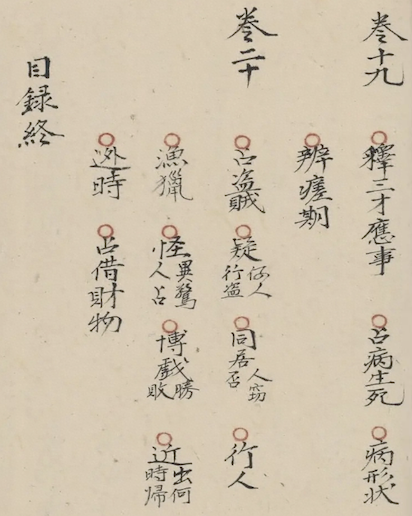 卷十九 釋三才應事 占病生死 病形状
辨瘥期
卷二十 占盗賊 疑佞人行盗 同居人窃否 行人
漁獵 怪異驚人占 博戲勝敗 近出何時帰
迯時 占借財物
目録終